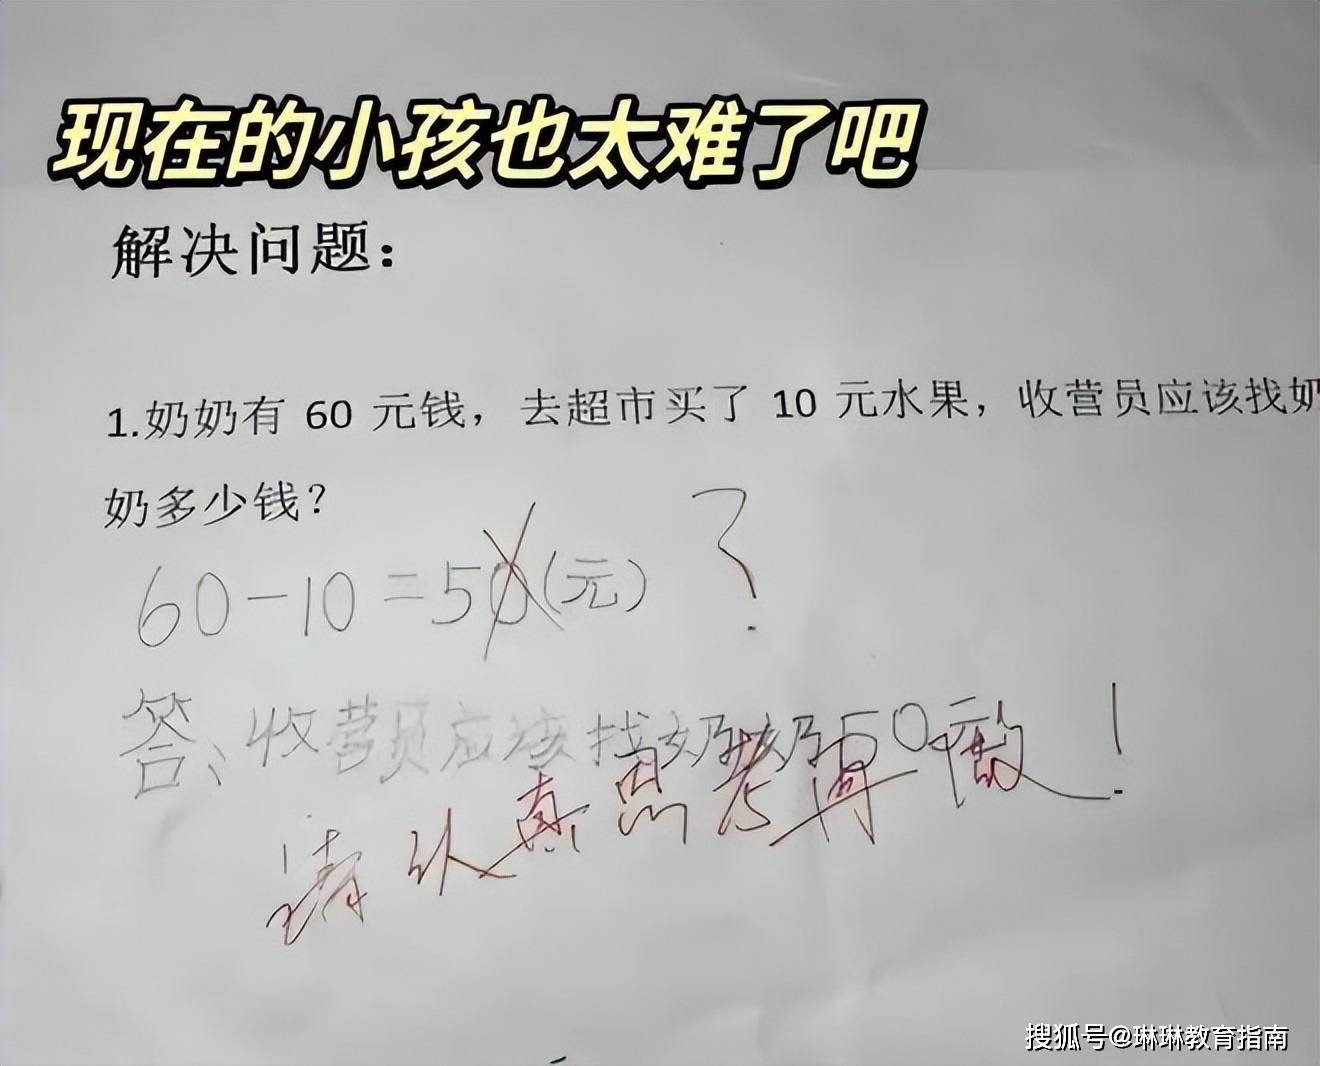 现在的小孩也太难了吧
解决问题：
1.奶奶有 60 元钱，去超市买了 10 元水果，收营员应该找奶
奶多少钱？
60-10=50(元) ?
答、收营员应该找奶奶50元
请认真思考再做！
搜狐号@琳琳教育指南